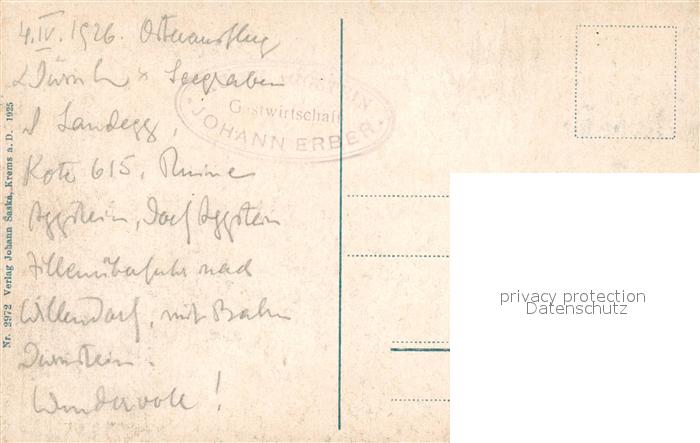 4.IV.1926. Osterausflug
Seegraben
Landegg,
Kote 615, Ruine
Aggstein, Dorf Aggstein
Zillenüberfuhr nach
Willendorf, mit Bahn
Dürnstein.
Wundervoll!
AGGSTEIN
Gastwirtschaft
JOHANN ERBER
Nr. 2972 Verlag Johann Saska, Krems a. D. 1925
privacy protection
Datenschutz